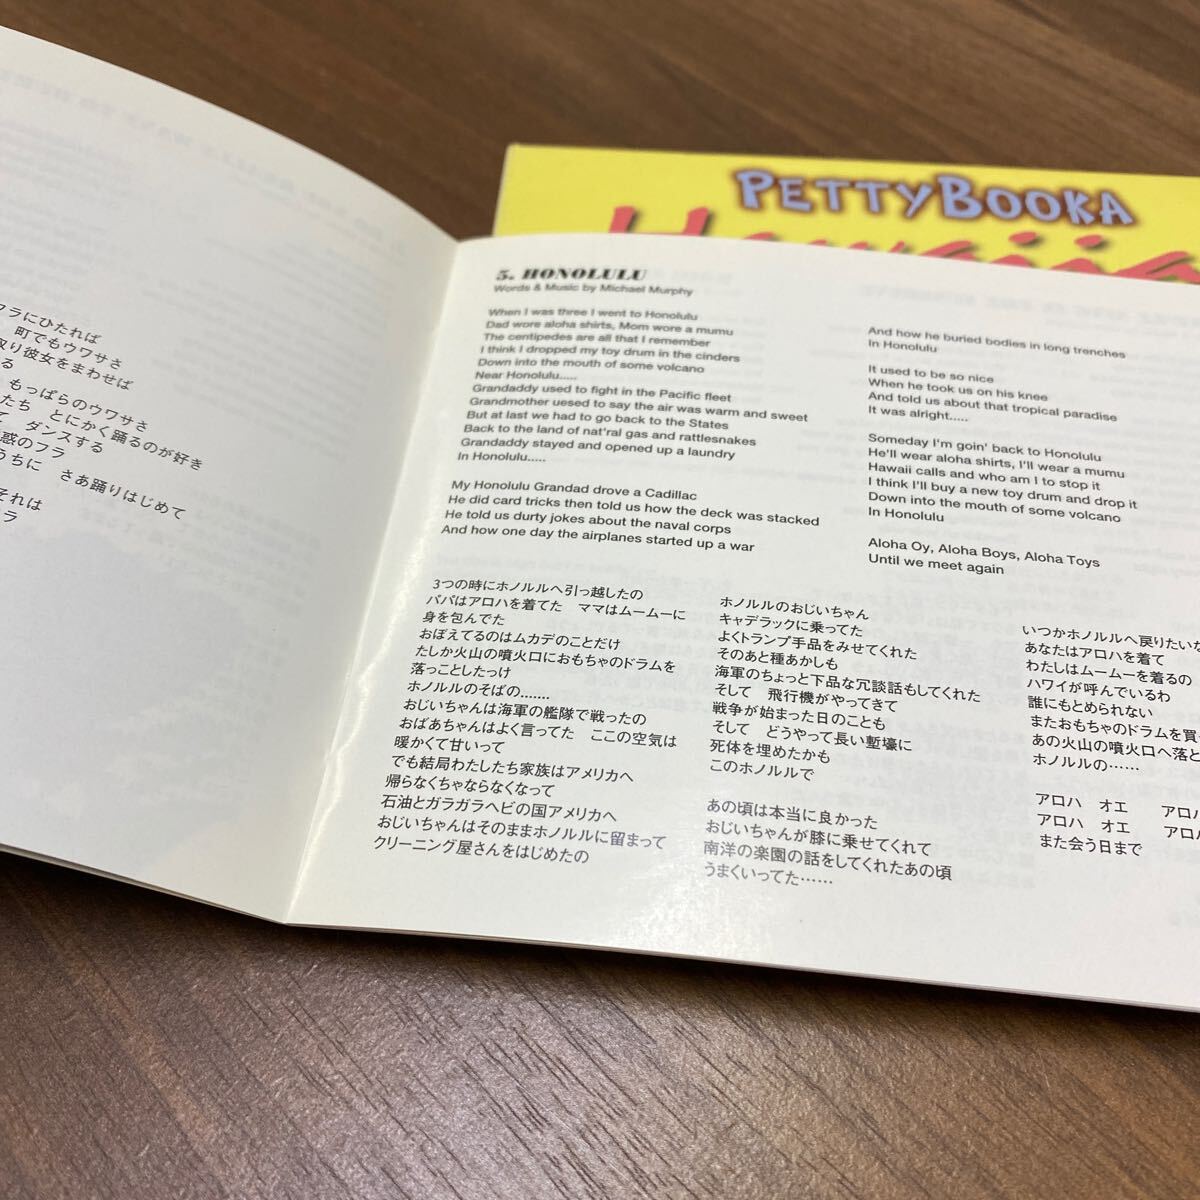 フラにひたれば
町でもウワサさ
取り彼女をまわせば
る
もっぱらのウワサさ
たち とにかく踊るのが好き
て ダンスする
惑のフラ
うちに さあ踊りはじめて
それは
ラ
PETTYBOOKA
5. HONOLULU
Words & Music by Michael Murphy
When I was three I went to Honolulu
Dad wore aloha shirts, Mom wore a mumu
The centipedes are all that I remember
I think I dropped my toy drum in the cinders
Down into the mouth of some volcano
Near Honolulu.....
Grandaddy used to fight in the Pacific fleet
Grandmother uesed to say the air was warm and sweet
But at last we had to go back to the States
Back to the land of nat'ral gas and rattlesnakes
Grandaddy stayed and opened up a laundry
In Honolulu.....
My Honolulu Grandad drove a Cadillac
He did card tricks then told us how the deck was stacked
He told us durty jokes about the naval corps
And how one day the airplanes started up a war
And how he buried bodies in long trenches
In Honolulu
It used to be so nice
When he took us on his knee
And told us about that tropical paradise
It was alright.....
Someday I'm goin' back to Honolulu
He'll wear aloha shirts, I'll wear a mumu
Hawaii calls and who am I to stop it
I think I'll buy a new toy drum and drop it
Down into the mouth of some volcano
In Honolulu
Aloha Oy, Aloha Boys, Aloha Toys
Until we meet again
3つの時にホノルルへ引っ越したの
パパはアロハを着てた ママはムームーに
身を包んでた
おぼえてるのはムカデのことだけ
たしか火山の噴火口におもちゃのドラムを
落っことしたっけ
ホノルルのそばの.......
おじいちゃんは海軍の艦隊で戦ったの
おばあちゃんはよく言ってた ここの空気は
暖かくて甘いって
でも結局わたしたち家族はアメリカへ
帰らなくちゃならなくなって
石油とガラガラヘビの国アメリカへ
おじいちゃんはそのままホノルルに留まって
クリーニング屋さんをはじめたの
ホノルルのおじいちゃん
キャデラックに乗ってた
よくトランプ手品をみせてくれた
そのあと種あかしも
海軍のちょっと下品な冗談話もしてくれた
そして 飛行機がやってきて
戦争が始まった日のことも
そして どうやって長い塹壕に
死体を埋めたかも
このホノルルで
あの頃は本当に良かった
おじいちゃんが膝に乗せてくれて
南洋の楽園の話をしてくれたあの頃
うまくいってた……
いつかホノルルへ戻りたいな
あなたはアロハを着て
わたしはムームーを着るの
ハワイが呼んでいるわ
誰にもとめられない
またおもちゃのドラムを買
あの火山の噴火口へ落と
ホノルルの……
アロハ オエ アロハ
アロハ オエ アロハ
また会う日まで